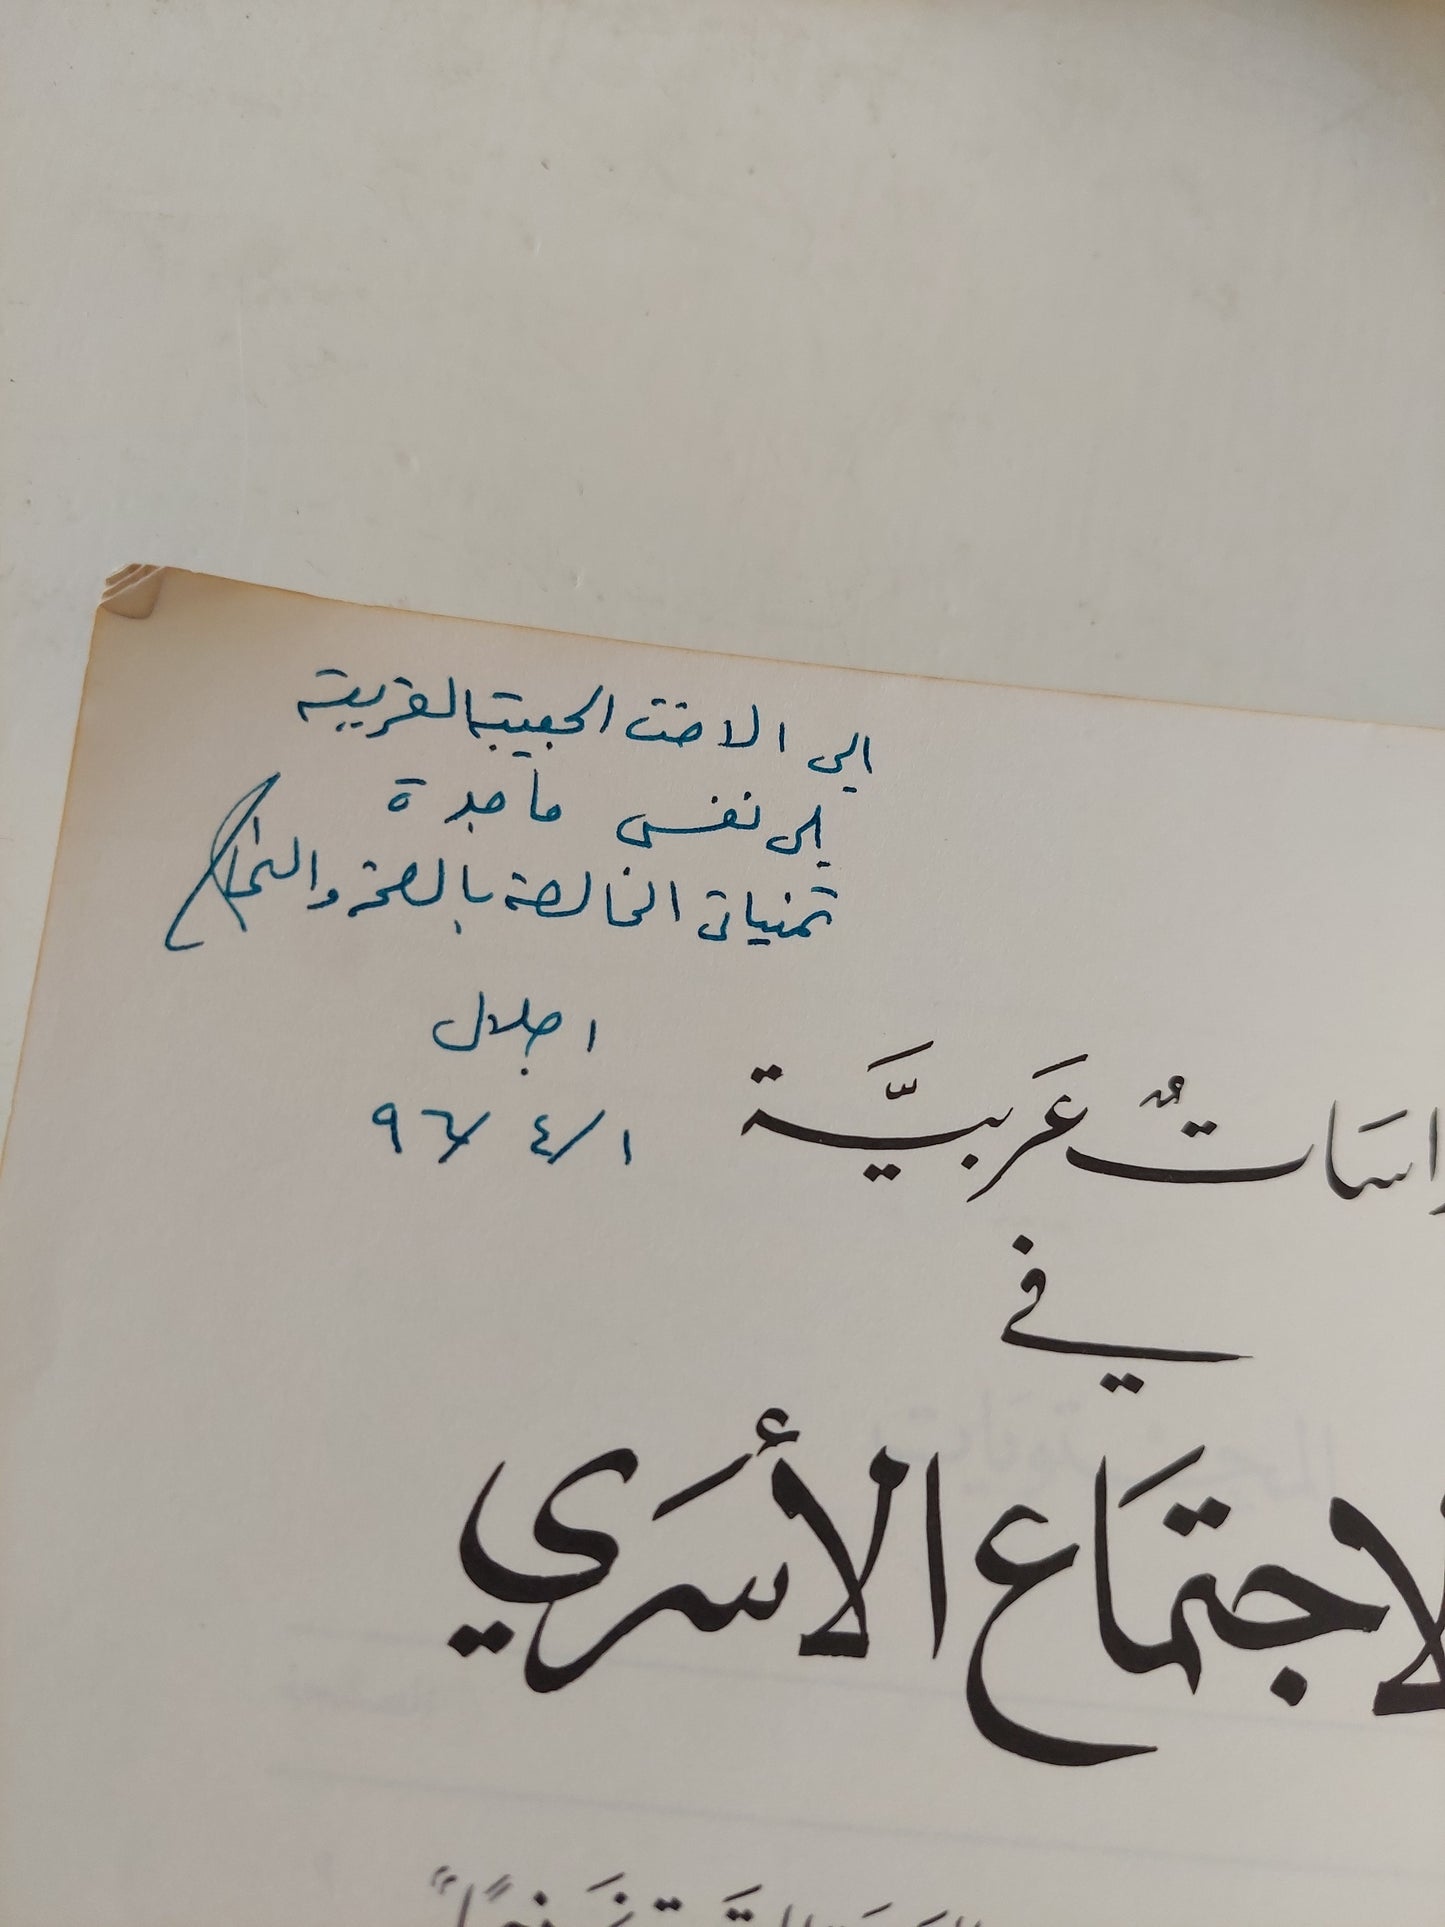 إلي الاخت الحبيبة القريبة
إلى نفسى ماجدة
تمنياتى الخالصة بالصحة والنجاح
اجلال
١/٤/٩٦
دراساتٌ عَربيَّة
في
الاجتمَاع الأسَري